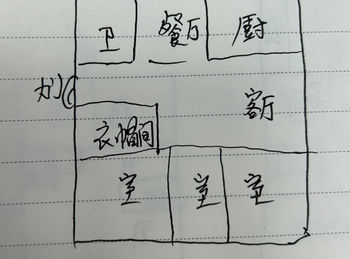 卫 餐厅 厨
客厅
衣帽间
室 室 室